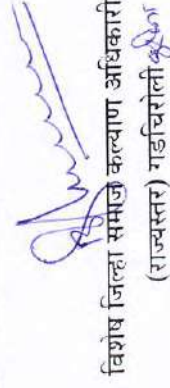 विशेष जिल्हा समाज कल्याण अधिकारी
(राज्यस्तर) गडचिरोली